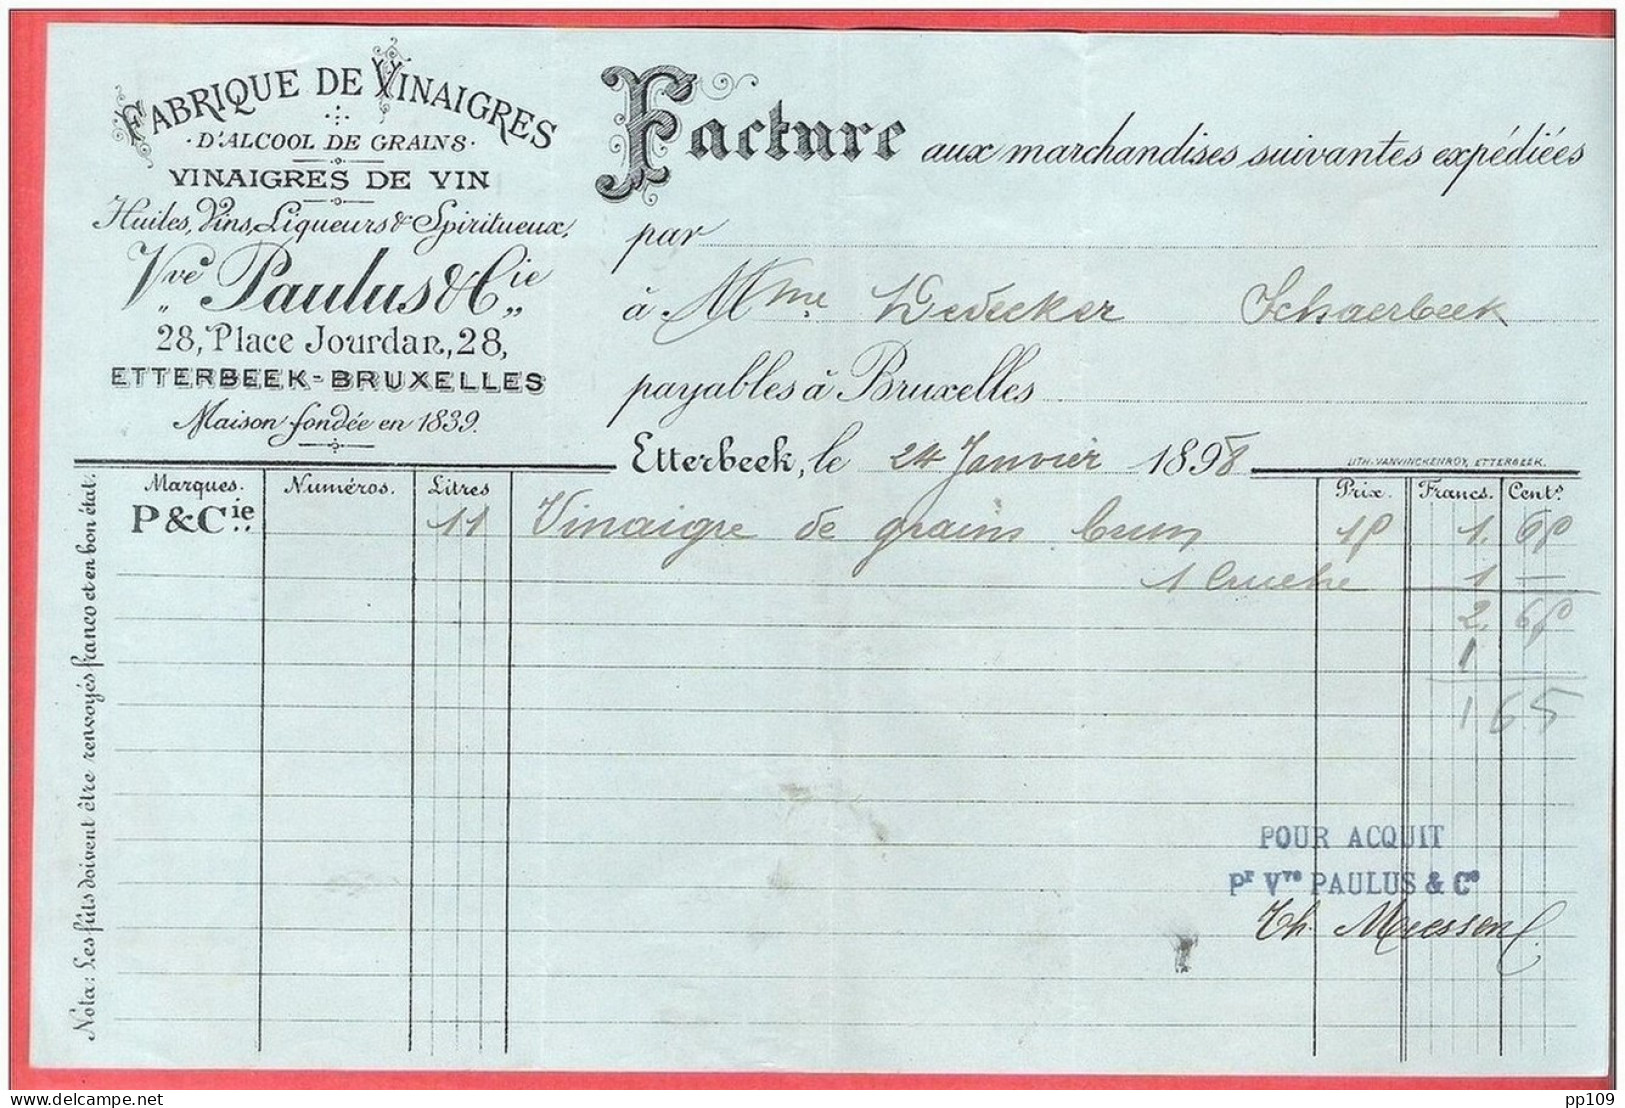 FABRIQUE DE VINAIGRES
D'ALCOOL DE GRAINS
VINAIGRES DE VIN
Huiles, Vins, Liqueurs & Spiritueux.
Vve Paulus & Cie
28, Place Jourdan, 28,
ETTERBEEK-BRUXELLES
Maison fondée en 1839.
Facture aux marchandises suivantes expédiées
par
à Mme Dedecker Schaerbeek
payables à Bruxelles
Etterbeek, le 24 Janvier 1898
LITH. VANVINCKENROY, ETTERBEEK.
Marques. Numéros. Litres Prix. Francs. Cents
P & Cie 11 Vinaigre de grains brun 15 1. 65
1 Cruche 1 —
2. 65
1
1 65
POUR ACQUIT
Pr Vve PAULUS & Ce
Th.
Nota: Les fûts doivent être renvoyés franco et en bon état.
Delcampe.net
pp109